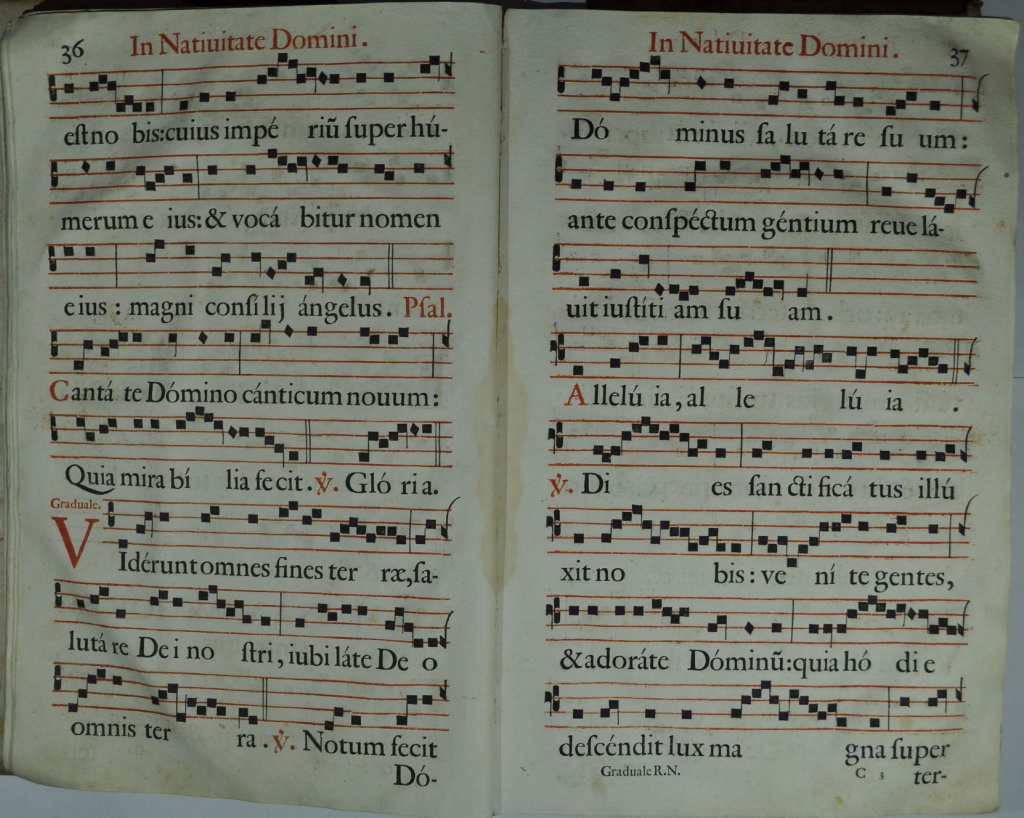 36
In Natiuitate Domini.
est no bis: cuius impé riũ ſuper hú-
merum e ius: & vocá bitur nomen
eius : magni conſi lij ángelus. Pſal.
Cantá te Dómino cánticum nouum:
Quia mira bí lia fe cit. ℣. Gló ri a.
Graduale.
VIdérunt omnes fines ter ræ, ſa-
lutá re De i no ſtri, iubi láte De o
omnis ter ra. ℣. Notum fecit
Dó-
In Natiuitate Domini.
37
Dó minus ſa lu tá re ſu um:
ante conſpéctum géntium reue lá-
uit iuſtiti am ſu am.
Allelú ia, al le lú ia .
℣. Di es ſan cti ficá tus illú
xit no bis: ve ní te gentes,
& adoráte Dóminũ: quia hó di e
deſcéndit lux ma gna ſuper
Graduale R.N. C 3 ter-